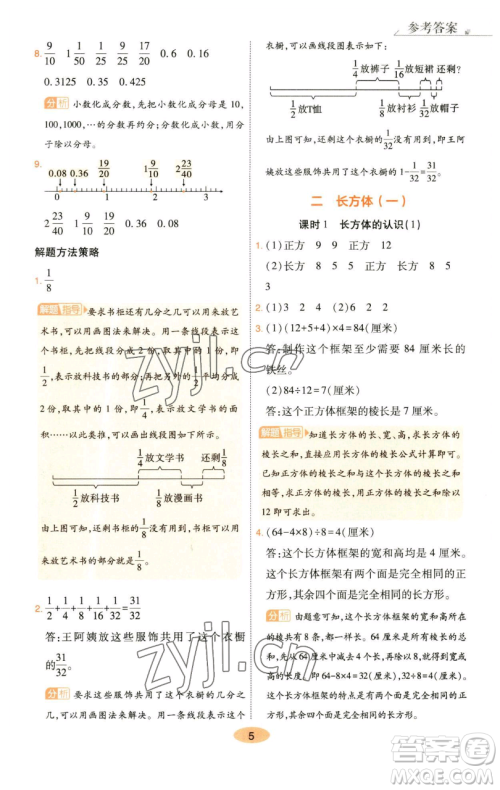 参考答案
8. 9/10 1 1/50 1/50 0.6 0.16
0.3125 0.35 0.45
分析 小数化成分数,先把小数化成分母是10,
100,1000,…的分数再约分;分数化成小数,用分
子除以分母。
9. 0.08 0.36 19/20 1 9/10 2 23/40
0 1 2 3
2 23/40 1 9/10 19/20 0.36 0.08
解题方法策略
1. 1/8
解题指导 要求书柜还剩几分之几可以用来放艺
术书,可以用画图法来解决。用一条线段表示
整个书柜,先把线段平均分成2份,取其中的1份,即
1/2,表示放科技书的,把剩下的1/2平均分成
2份,取其中的1份,即1/4,表示放文学书
的……以此类推,可以画线段图表示如下:
1/4放文学书 还剩1/8
1/2放科技书 1/8放漫画书
由上图可知,还剩1/8没有用到,所以可以用
来放艺术书的是1/8。
2. 1/2+1/4+1/8+1/16+1/32=31/32
答:王阿姨放这些服饰共用了这个衣橱
的31/32。
分析 要求放这些服饰共用了这个衣橱的几分之几,
可以用画图法来解决。用一条线段表示这个
衣橱,可以画线段图表示如下:
1/4放裤子 1/16放短裙 还剩?
1/2放T恤 1/8放衬衫 1/32放帽子
由上图可知,放这些服饰共用了这个衣橱的,王阿
姨放这些服饰共用了这个衣橱的1-1/32=31/32。
二 长方体(一)
课时1 长方体的认识(1)
1. (1)正方 9 9 正方 12
(2)长方 8 5 长方 8 5
3
2. (1)3 2 4 (2)6 2 2
3. (1)(12+5+4)×4=84(厘米)
答:制作这个框架至少需要84厘米长的
铁丝。
(2)84÷12=7(厘米)
答:这个正方体框架的棱长是7厘米。
解题指导 知道长方体的长、宽、高,求长方体的
棱长之和,根据长方体的棱长公式计算即可。
已知正方体的棱长之和求棱长,用棱长之和除以
12即可求出。
4. (64-4×8)÷8=4(厘米)
答:这个长方体框架的宽和高均是4厘米。
这个长方体框架有两个面是完全相同的正
方形,其余四个面是完全相同的长方形。
分析 由题意可知,这个长方体框架的宽和高所在
的棱共有8条,都一样长。64厘米长的铁丝减去4
条长的长度,就是8条宽(高)的长度,即
64-8×4=32(厘米),32÷8=4(厘米)。这个长方体
框架有两个面是完全相同的正方形,其余四个面
是完全相同的长方形。
5
zyjl.cn
zyjl.cn
答案圈
MXQE.COM